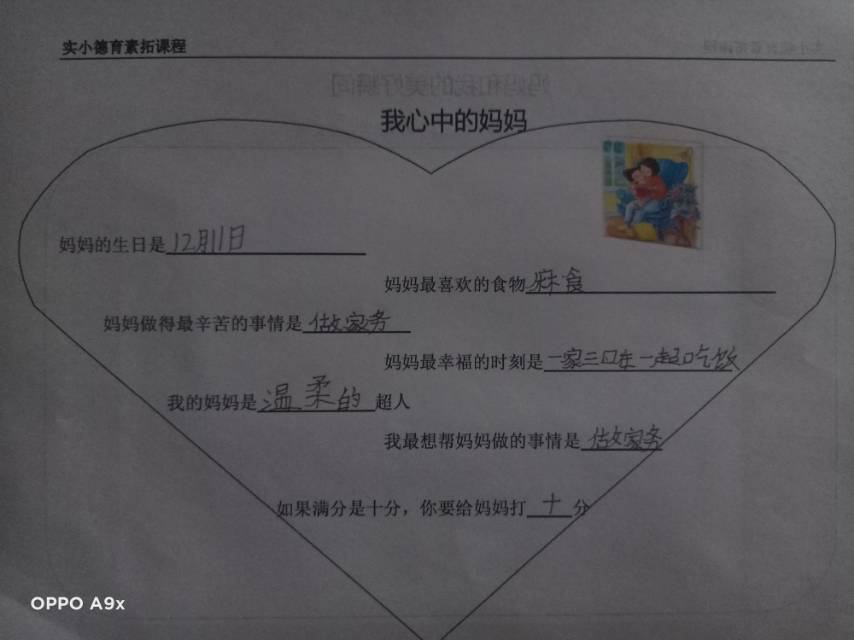 实小德育素拓课程
我心中的妈妈
妈妈的生日是12月11日
妈妈最喜欢的食物麻食
妈妈做得最辛苦的事情是做家务
妈妈最幸福的时刻是一家三口在一起吃饭
我的妈妈是温柔的超人
我最想帮妈妈做的事情是做家务
如果满分是十分，你要给妈妈打十分
OPPO A9x